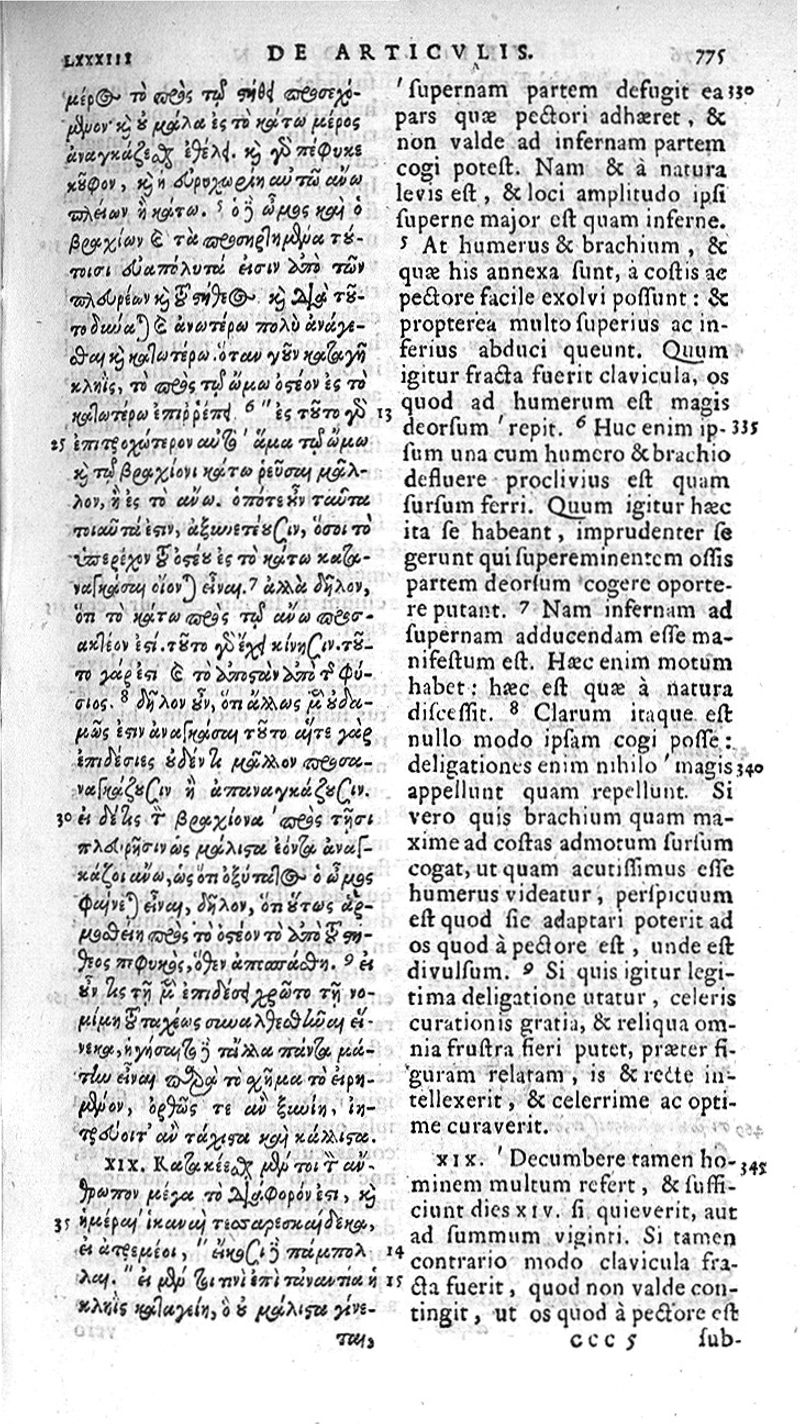 LXXXIII DE ARTICVLIS. 775
μέρος τὸ πρὸς τῷ στήθει προσεχό-
μενον· καὶ οὐ μάλα ἐς τὸ κάτω μέρος
ἀναγκάζεσθαι ἐθέλει. καὶ γὰρ πέφυκε
κοῦφον, καὶ ἡ εὐρυχωρίη αὐτῷ ἄνω
πλείων ἢ κάτω. 5 ὁ δὲ ὦμος καὶ ὁ
βραχίων καὶ τὰ προσηρτημένα τού-
τοισι εὐαπόλυτά εἰσιν ἀπὸ τῶν
πλευρέων καὶ τοῦ στήθεος καὶ διὰ τοῦ-
το δύναται καὶ ἀνωτέρω πολὺ ἀνάγε-
σθαι καὶ κατωτέρω. ὅταν γοῦν καταγῇ
κληῒς, τὸ πρὸς τῷ ὤμῳ ὀστέον ἐς τὸ
κατωτέρω ἐπιῤῥέπει. 6 " ἐς τοῦτο γὰρ 13
25 ἐπιτροχώτερον αὐτὸ ' ἅμα τῷ ὤμῳ
καὶ τῷ βραχίονι κάτω ῥεῦσαι μᾶλ-
λον, ἢ ἐς τὸ ἄνω. ὁπότε οὖν ταῦτα
τοιαῦτά ἐστιν, ἀξυνετέουσιν, ὅσοι τὸ
ὑπερέχον τοῦ ὀστέου ἐς τὸ κάτω κατα-
ναγκάσαι οἴονται εἶναι. 7 ἀλλὰ δῆλον,
ὅτι τὸ κάτω πρὸς τῷ ἄνω προσ-
ακτέον ἐστί. τοῦτο γὰρ ἔχει κίνησιν. τοῦ-
το γάρ ἐστι καὶ τὸ ἀποστὰν ἀπὸ τῆς φύ-
σιος. 8 δῆλον οὖν, ὅτι ἄλλως μὲν οὐδα-
μῶς ἐστιν ἀναγκάσαι τοῦτο αἵτε γὰρ
ἐπιδέσιες οὐδέν τι μᾶλλον προσα-
ναγκάζουσιν ἢ ἀπαναγκάζουσιν.
30 εἰ δέ τις τὸν βραχίονα ' πρὸς τῇσι
πλευρῇσιν ὡς μάλιστα ἐόντα ἀναγ-
κάζοι ἄνω, ὡς ὅτι ὀξύτατος ὁ ὦμος
φαίνεται εἶναι, δῆλον, ὅτι οὕτως ἁρ-
μοσθείη πρὸς τὸ ὀστέον τὸ ἀπὸ τοῦ στή-
θεος πεφυκὸς, ὅθεν ἀπεσπάσθη. 9 εἰ
οὖν τις τῇ μὲν ἐπιδέσει χρῷτο τῇ νο-
μίμῃ τοῦ ταχέως συναλθεσθῆναι εἵ-
νεκα, ἡγήσαιτο δὲ τἄλλα πάντα μά-
την εἶναι παρὰ τὸ σχῆμα τὸ εἰρη-
μένον, ὀρθῶς τε ἂν ξυνίῃ, ἰη-
τρεύοιτ' ἂν τάχιστα καὶ κάλλιστα.
XIX. Κατακέεσθαι μέντοι τὸν ἄν-
θρωπον μέγα τὸ διάφορόν ἐστι, καὶ
35 ἡμέραι ἱκαναὶ τεσσαρεσκαίδεκα,
εἰ ἀτρεμέοι, " εἴκοσι δὲ πάμπολ- 14
λαι. " εἰ μέντοι τινὶ ἐπὶ τἀναντία ἡ 15
κληῒς καταγείη, ὃ οὐ μάλιστα γίνε-
ται,
' supernam partem defugit ea 330
pars quæ pectori adhæret, &
non valde ad infernam partem
cogi potest. Nam & à natura
levis est, & loci amplitudo ipsi
superne major est quam inferne.
5 At humerus & brachium, &
quæ his annexa sunt, à costis ac
pectore facile exolvi possunt: &
propterea multo superius ac in-
ferius abduci queunt. Quum
igitur fracta fuerit clavicula, os
quod ad humerum est magis
deorsum ' repit. 6 Huc enim ip- 335
sum una cum humero & brachio
defluere proclivius est quam
sursum ferri. Quum igitur hæc
ita se habeant, imprudenter se
gerunt qui supereminentem ossis
partem deorsum cogere oporte-
re putant. 7 Nam infernam ad
supernam adducendam esse ma-
nifestum est. Hæc enim motum
habet: hæc est quæ à natura
discessit. 8 Clarum itaque est
nullo modo ipsam cogi posse:
deligationes enim nihilo ' magis 340
appellunt quam repellunt. Si
vero quis brachium quam ma-
xime ad costas admotum sursum
cogat, ut quam acutissimus esse
humerus videatur, perspicuum
est quod sic adaptari poterit ad
os quod à pectore est, unde est
divulsum. 9 Si quis igitur legi-
tima deligatione utatur, celeris
curationis gratia, & reliqua om-
nia frustra fieri putet, præter fi-
guram relatam, is & recte in-
tellexerit, & celerrime ac opti-
me curaverit.
XIX. ' Decumbere tamen ho- 345
minem multum refert, & suffi-
ciunt dies XIV. si quieverit, aut
ad summum viginti. Si tamen
contrario modo clavicula fra-
cta fuerit, quod non valde con-
tingit, ut os quod à pectore est
CCC 5 sub-